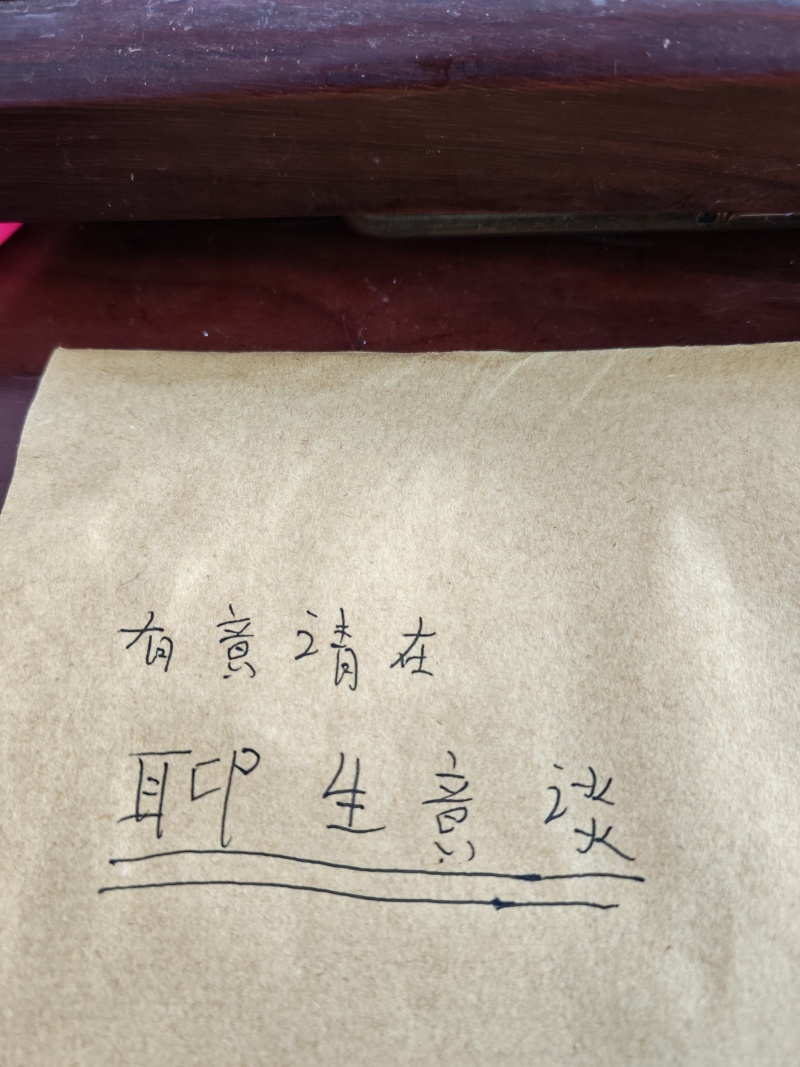 有意请在
聊生意谈